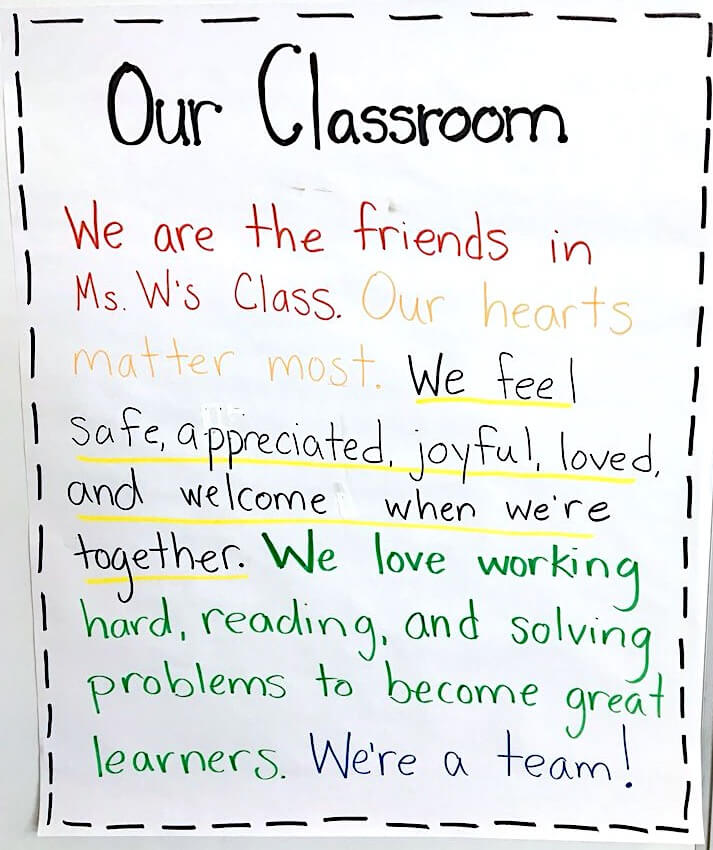 Our Classroom
We are the friends in
Ms. W's Class. Our hearts
matter most. We feel
safe, appreciated, joyful, loved,
and welcome when we're
together. We love working
hard, reading, and solving
problems to become great
learners. We're a team!